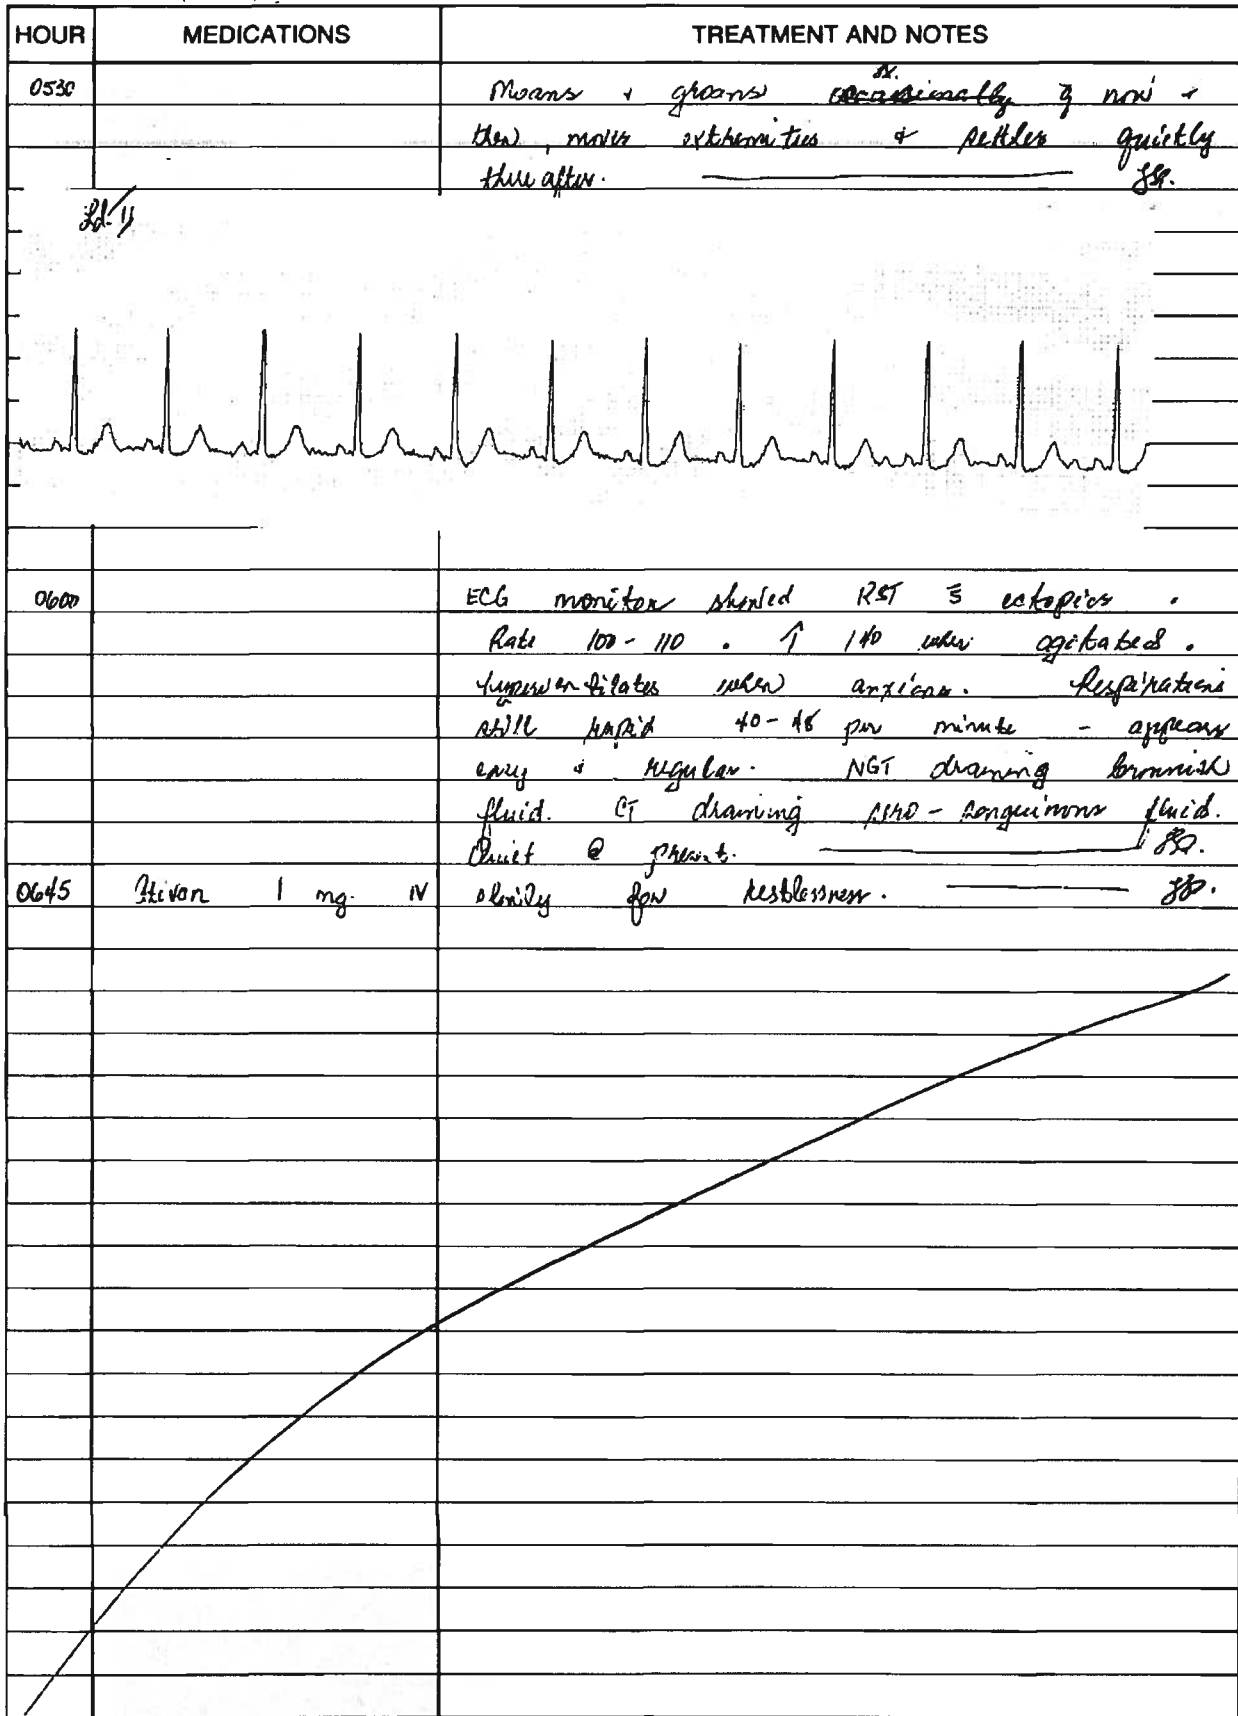 HOUR MEDICATIONS TREATMENT AND NOTES
0530 Moans + groans occasionally q now +
then, moves extremities + settles quickly
thereafter.
Ld. II
0600 ECG monitor showed RST s̄ ectopics.
Rate 100-110. ↑ 140 when agitated.
hyperventilates when anxious. Respirations
still rapid 40-48 per minute - appears
easy + regular. NGT draining brownish
fluid. CT draining sero-sanguinous fluid.
Quiet @ present.
0645 Ativan 1 mg. IV slowly for restlessness.